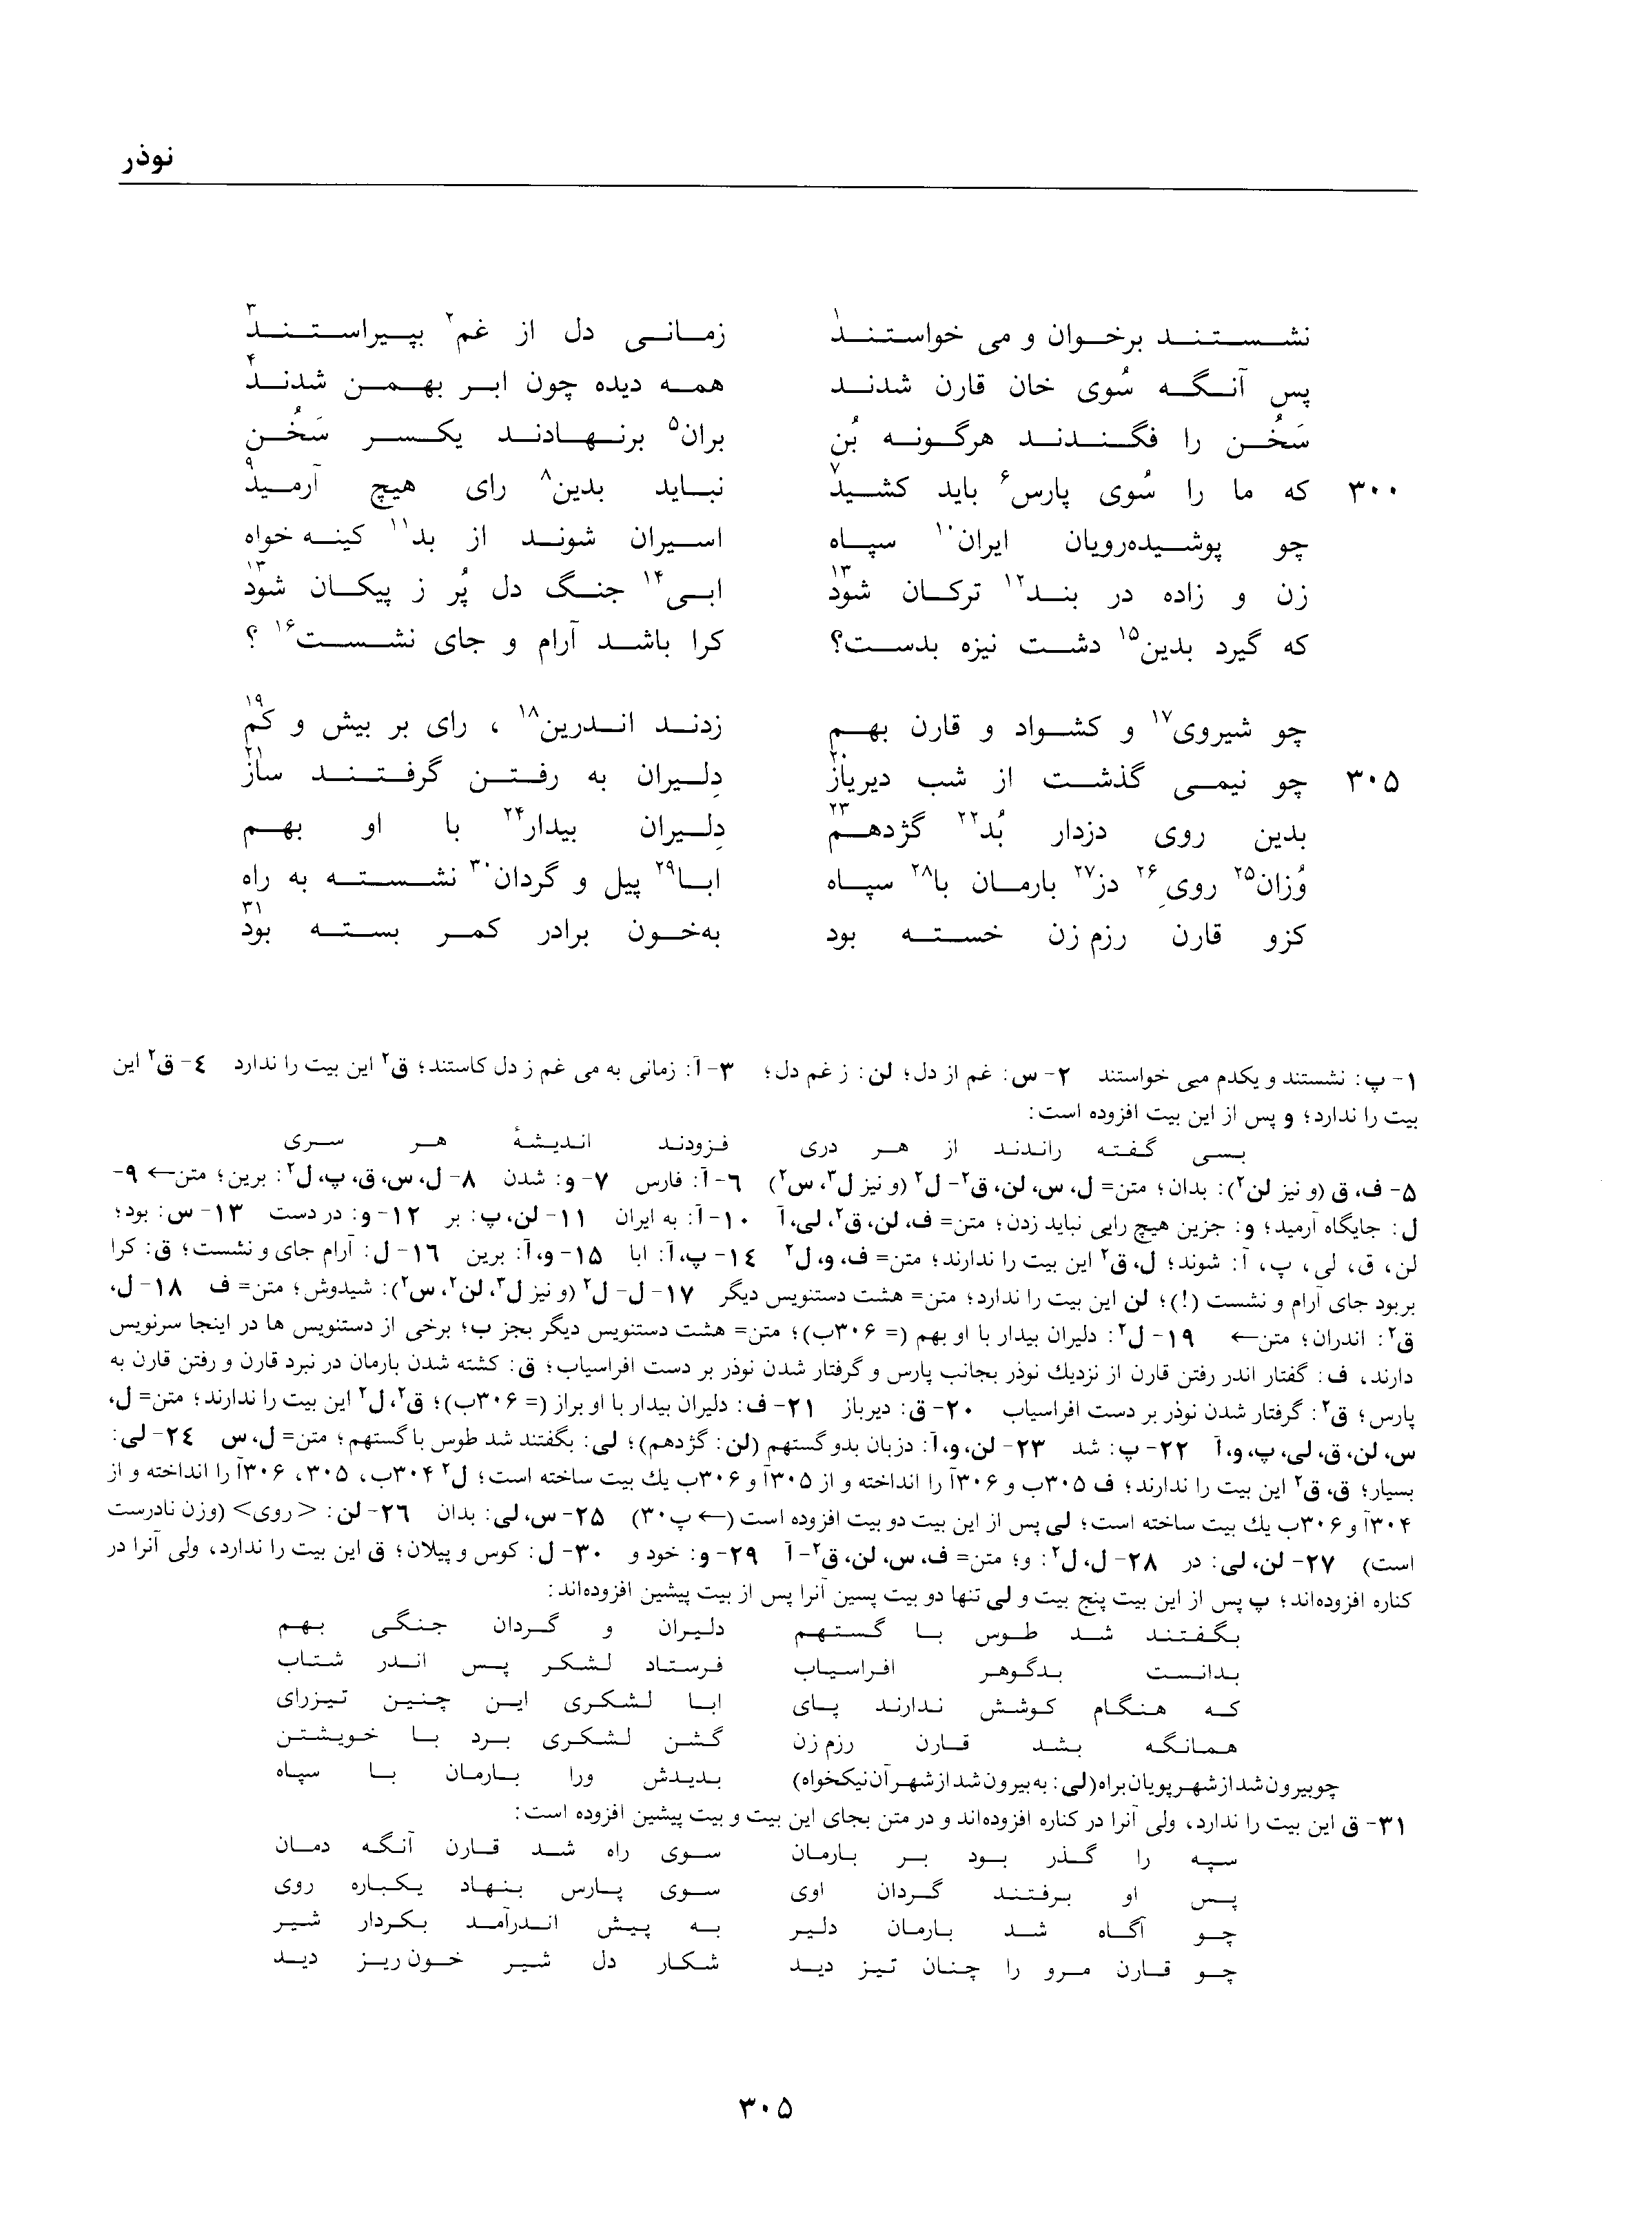 نوذر
نشستند برخوان و می خواستند۱ زمانی دل از غم۲ بپیراستند۳
پس آنگه سُوی خان قارن شدند همه دیده چون ابر بهمن شدند۴
سَخُن را فگندند هرگونه بُن بران۵ برنهادند یکسر سَخُن
۳۰۰ که ما را سُوی پارس۶ باید کشید۷ نباید بدین۸ رای هیچ آرمید۹
چو پوشیده‌رویان ایران۱۰ سپاه اسیران شوند از بد۱۱ کینه خواه
زن و زاده در بند۱۲ ترکان شود۱۳ ابی۱۴ جنگ دل پُر ز پیکان شود۱۳
که گیرد بدین۱۵ دشت نیزه بدست؟ کرا باشد آرام و جای نشست۱۶ ؟
چو شیروی۱۷ و کشواد و قارن بهم زدند اندرین۱۸ ، رای بر بیش و کم۱۹
۳۰۵ چو نیمی گذشت از شب دیریاز۲۰ دلِیران به رفتن گرفتند ساز۲۱
بدین روی دزدار بُد۲۲ گژدهم۲۳ دلِیران بیدار۲۴ با او بهم
وُزان۲۵ رویِ۲۶ دز۲۷ بارمان با۲۸ سپاه ابا۲۹ پیل و گردان۳۰ نشسته به راه
کزو قارن رزم زن خسته بود به‌خون برادر کمر بسته بود۳۱
۱- پ: نشستند و یکدم میی خواستند ۲- س: غم از دل؛ لن: ز غم دل؛ ۳- آ: زمانی به می غم ز دل کاستند؛ ق۲ این بیت را ندارد ٤- ق۲ این
بیت را ندارد؛ و پس از این بیت افزوده است:
بسی گفته راندند از هر دری فزودند اندیشهٔ هر سری
۵- ف، ق (و نیز لن۲): بدان؛ متن= ل، س، لن، ق۲- ل۲ (و نیز ل۳، س۲) ٦- آ: فارس ۷- و: شدن ۸- ل، س، ق، پ، ل۲: برین؛ متن← ۹-
ل: جایگاه آرمید؛ و: جزین هیچ رایی نباید زدن؛ متن= ف، لن، ق۲، لی، آ ۱۰- آ: به ایران ۱۱- لن، پ: بر ۱۲- و: در دست ۱۳- س: بود؛
لن، ق، لی، پ، آ: شوند؛ ل، ق۲ این بیت را ندارند؛ متن= ف، و، ل۲ ۱٤- پ، آ: ابا ۱۵- و، آ: برین ۱٦- ل: آرام جای و نشست؛ ق: کرا
بر بود جای آرام و نشست (!)؛ لن این بیت را ندارد؛ متن= هشت دستنویس دیگر ۱۷- ل- ل۲ (و نیز ل۳، لن۲، س۲): شیدوش؛ متن= ف ۱۸- ل،
ق۲: اندران؛ متن← ۱۹- ل۲: دلیران بیدار با او بهم (= ۳۰۶ب)؛ متن= هشت دستنویس دیگر بجز ب؛ برخی از دستنویس ها در اینجا سرنویس
دارند، ف: گفتار اندر رفتن قارن از نزدیك نوذر بجانب پارس و گرفتار شدن نوذر بر دست افراسیاب؛ ق: کشته شدن بارمان در نبرد قارن و رفتن قارن به
پارس؛ ق۲: گرفتار شدن نوذر بر دست افراسیاب ۲۰- ق: دیرباز ۲۱- ف: دلیران بیدار با او براز (= ۳۰۶ب)؛ ق۲، ل۲ این بیت را ندارند؛ متن= ل،
س، لن، ق، لی، پ، و، آ ۲۲- پ: شد ۲۳- لن، و، آ: دزبان بدو گستهم (لن: گژدهم)؛ لی: بگفتند شد طوس با گستهم؛ متن= ل، س ۲٤- لی:
بسیار؛ ق، ق۲ این بیت را ندارند؛ ف ۳۰۵ب و ۳۰۶آ را انداخته و از ۳۰۵آ و ۳۰۶ب یك بیت ساخته است؛ ل۲ ۳۰۴ب، ۳۰۵، ۳۰۶آ را انداخته و از
۳۰۴آ و ۳۰۶ب یك بیت ساخته است؛ لی پس از این بیت دو بیت افزوده است (← پ۳۰) ۲۵- س، لی: بدان ۲٦- لن: <روی> (وزن نادرست
است) ۲۷- لن، لی: در ۲۸- ل، ل۲: و؛ متن= ف، س، لن، ق۲- آ ۲۹- و: خود و ۳۰- ل: کوس و پیلان؛ ق این بیت را ندارد، ولی آنرا در
کناره افزوده‌اند؛ پ پس از این بیت پنج بیت و لی تنها دو بیت پسین آنرا پس از بیت پیشین افزوده‌اند:
بگفتند شد طوس با گستهم دلیران و گردان جنگی بهم
بدانست بدگوهر افراسیاب فرستاد لشکر پس اندر شتاب
که هنگام کوشش ندارند پای ابا لشکری این چنین تیزرای
همانگه بشد قارن رزم زن گشن لشکری برد با خویشتن
چو بیرون شد از شهر پویان براه (لی: به بیرون شد از شهر آن نیکخواه) بدیدش ورا بارمان با سپاه
۳۱- ق این بیت را ندارد، ولی آنرا در کناره افزوده‌اند و در متن بجای این بیت و بیت پیشین افزوده است:
سپه را گذر بود بر بارمان سوی راه شد قارن آنگه دمان
پس او برفتند گردان اوی سوی پارس بنهاد یکباره روی
چو آگاه شد بارمان دلیر به پیش اندرآمد بکردار شیر
چو قارن مرو را چنان تیز دید شکار دل شیر خون ریز دید
۳۰۵